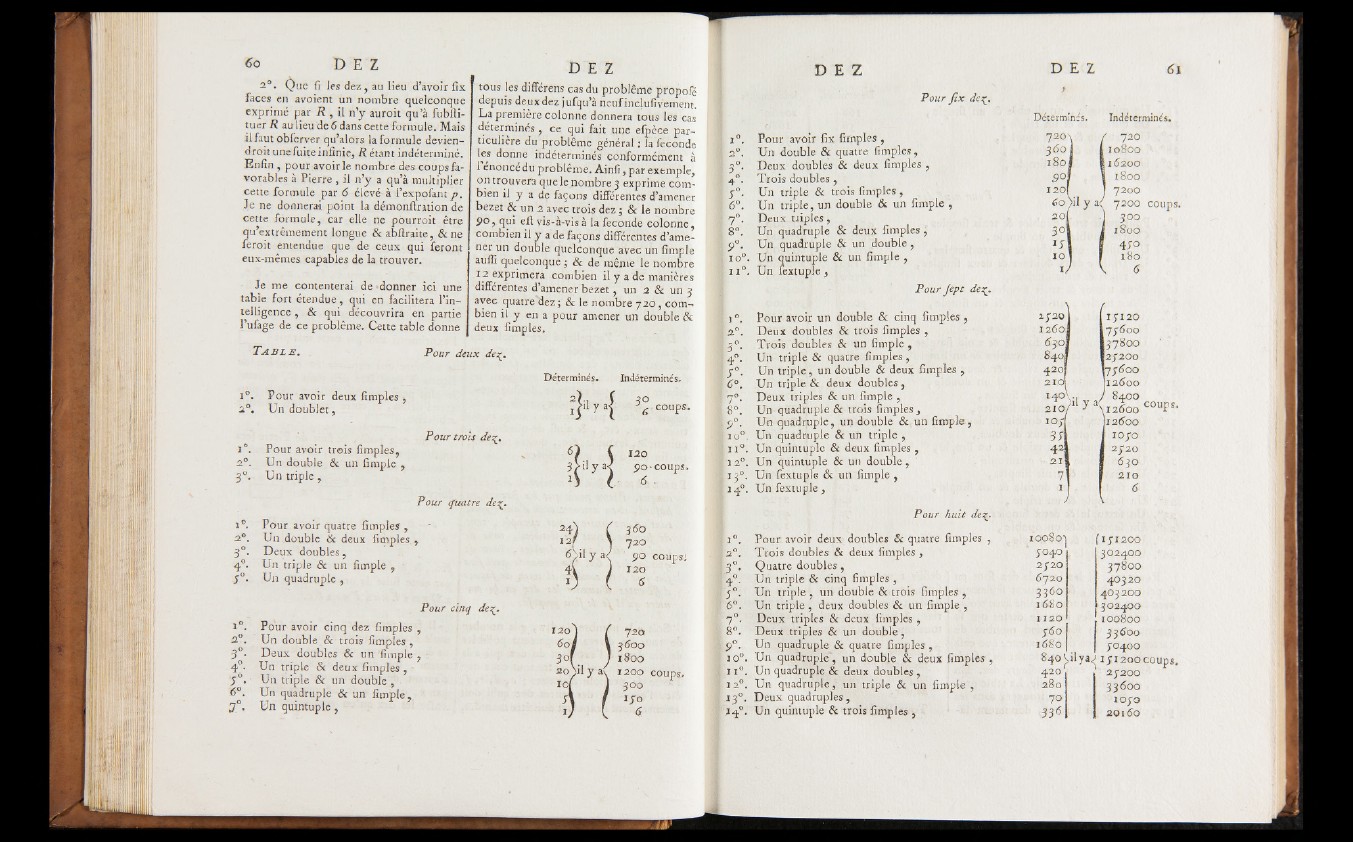 60 DEZ DEZ
2°. Que ſi les dez, au lieu d'avoir ſix
faces en avoient un nombre quelconque
exprimé par R, il n'y auroit qu'à ſubſti-
tuer R au lieu de 6 dans cette formule. Mais
il faut obſerver qu'alors la formule devien-
droit une ſuite infinie, R étant indéterminé.
Enfin, pour avoir le nombre des coups fa-
vorables à Pierre, il n'y a qu'à multiplier
cette formule par 6 élevé à l'expoſant p.
Je ne donnerai point la démonſtration de
cette formule, car elle ne pourroit être
qu'extrêmement longue & abſtraite, & ne
ſeroit entendue que de ceux qui ſeront
eux-mêmes capables de la trouver.
Je me contenterai de donner ici une
table fort étendue, qui en facilitera l'in-
telligence, & qui découvrira en partie
l'uſage de ce problême. Cette table donne
tous les différens cas du problême propoſé
depuis deux dez juſqu'à neuf incluſivement.
La premiére colonne donnera tous les cas
déterminés, ce qui fait une eſpèce par-
ticulière du problême général; la ſeconde
les donne indéterminés conformément à
l'énoncé du problême. Ainſi, par exemple,
on trouvera que le nombre 3 exprime com-
bien il y a de façons différentes d'amener
bezet & un 2 avec trois dez; & le nombre
90, qui eſt vis-à-vis à la ſeconde colonne,
combien il y a de façons différentes d'ame-
ner un double quelconque avec un ſimple
auſſi quelconque; & de même le nombre
12 exprimera combien il y a de manières
différentes d'amener bezet, un 2 & un 3
avec quatre dez; & le nombre 720, com-
bien il y en a pour amener un double &
deux ſimples.
TABLE. Pour deux dez.
Déterminés. Indéterminés.
1°. Pour avoir deux ſimples, 2 30
2°. Un doublet, 1 il y a 6 coups.
Pour trois dez.
1°. Pour avoir trois ſimples, 6 120
2°. Un double & un ſimple, 3 il y a 90 coups.
3°. Un triple, 1 6
Pour quatre dez.
1°. Pour avoir quatre ſimples, 24 360
2°. Un double & deux ſimples, 12 720
3°. Deux doubles, 6 il y a 90 coups;
4°. Un triple & un ſimple, 4 120
5°. Un quadruple, 1 6
Pour cinq dez.
1°. Pour avoir cinq dez ſimples, 120 720
2°. Un double & trois ſimples, 60 3600
3°. Deux doubles & un ſimple, 30 1800
4°. Un triple & deux ſimples, 20 il y a 1200 coups.
5°. Un triple & un double, 10 300
6°. Un quadruple & un ſimple, 5 150
7°. Un quintuple, 1 6
DEZ DEZ 61
Pour ſix dez.
Déterminés. Indéterminés.
1°. Pour avoir ſix ſimples, 720 720
2°. Un double & quatre ſimples, 360 10800
3°. Deux doubles & deux ſimples, 180 16200
4°. Trois doubles, 90 1800
5°. Un triple & trois ſimples, 120 7200
6°. Un triple, un double & un ſimple, 60 il y a 7200 coups.
7°. Deux triples, 20 300
8°. Un quadruple & deux ſimples, 30 1800
9°. Un quadruple & un double, 15 450
10°. Un quintuple & un ſimple, 10 180
11°. Un ſextuple, 1 6
Pour ſept dez.
1°. Pour avoir un double & cinq ſimples, 2520 15120
2°. Deux doubles & trois ſimples, 1260 75600
3°. Trois doubles & un ſimple, 630 37800
4°. Un triple & quatre ſimples, 840 25200
5°. Un triple, un double & deux ſimples, 420 75600
6°. Un triple & deux doubles, 210 12600
7°. Deux triples & un ſimple, 140 8400
8°. Un quadruple & trois ſimples, 210 il y a 12600 coups.
9°. Un quadruple, un double & un ſimple, 105 12600
10°. Un quadruple & un triple, 35 1050
11°. Un quintuple & deux ſimples, 42 2520
12°. Un quintuple & un double, 21 630
13°. Un ſextuple & un ſimple, 7 210
14°. Un ſextuple, 1 6
Pour huit dez.
1°. Pour avoir deux doubles & quatre ſimples, 10080 151200
2°. Trois doubles & deux ſimples, 5040 302400
3°. Quatre doubles, 2520 37800
4°. Un triple & cinq ſimples, 6720 40320
5°. Un triple, un double & trois ſimples, 3360 403200
6°. Un triple, deux doubles & un ſimple, 1680 302400
7°. Deux triples & deux ſimples, 1120 100800
8°. Deux triples & un double, 560 33600
9°. Un quadruple & quatre ſimples, 1680 50400
10°. Un quadruple, un double & deux ſimples, 840 il y a 151200 coups.
11°. Un quadruple & deux doubles, 420 25200
12°. Un quadruple, un triple & un ſimple, 280 33600
13°. Deux quadruples, 70 1050
14°. Un quintuple & trois ſimples, 336 20160